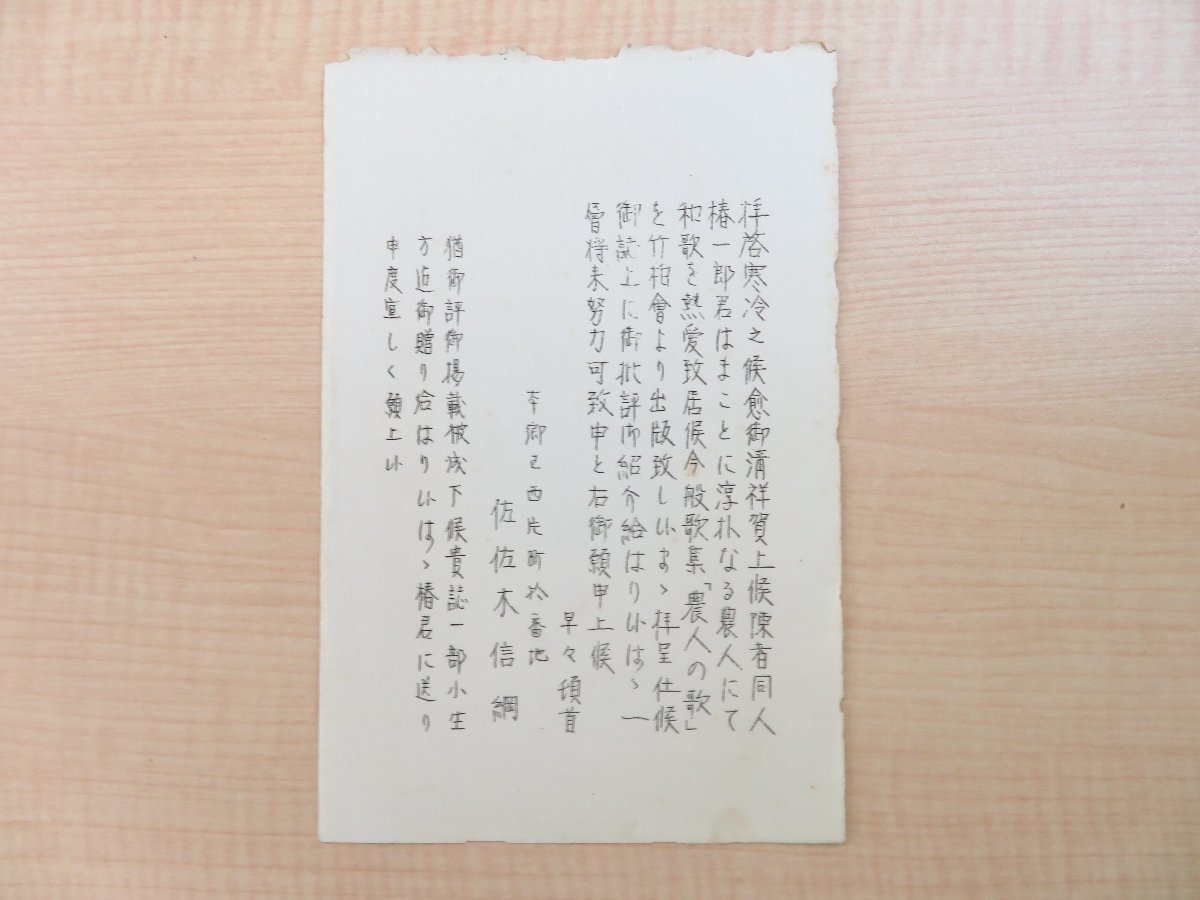 拝啓寒冷之候愈御清祥賀上候陳者同人
椿一郎君はまことに淳朴なる農人にて
和歌を熱愛致居候今般歌集「農人の歌」
を竹柏會より出版致し候まゝ拝呈仕候
御誌上に御批評御紹介給はり候はゞ一
層将来努力可致申と右御願申上候
早々頓首
本郷区西片町
番地
佐佐木信綱
猶御評御掲載被成下候貴誌一部小生
方迄御贈り給はり候はゞ椿君に送り
申度宜しく願上候